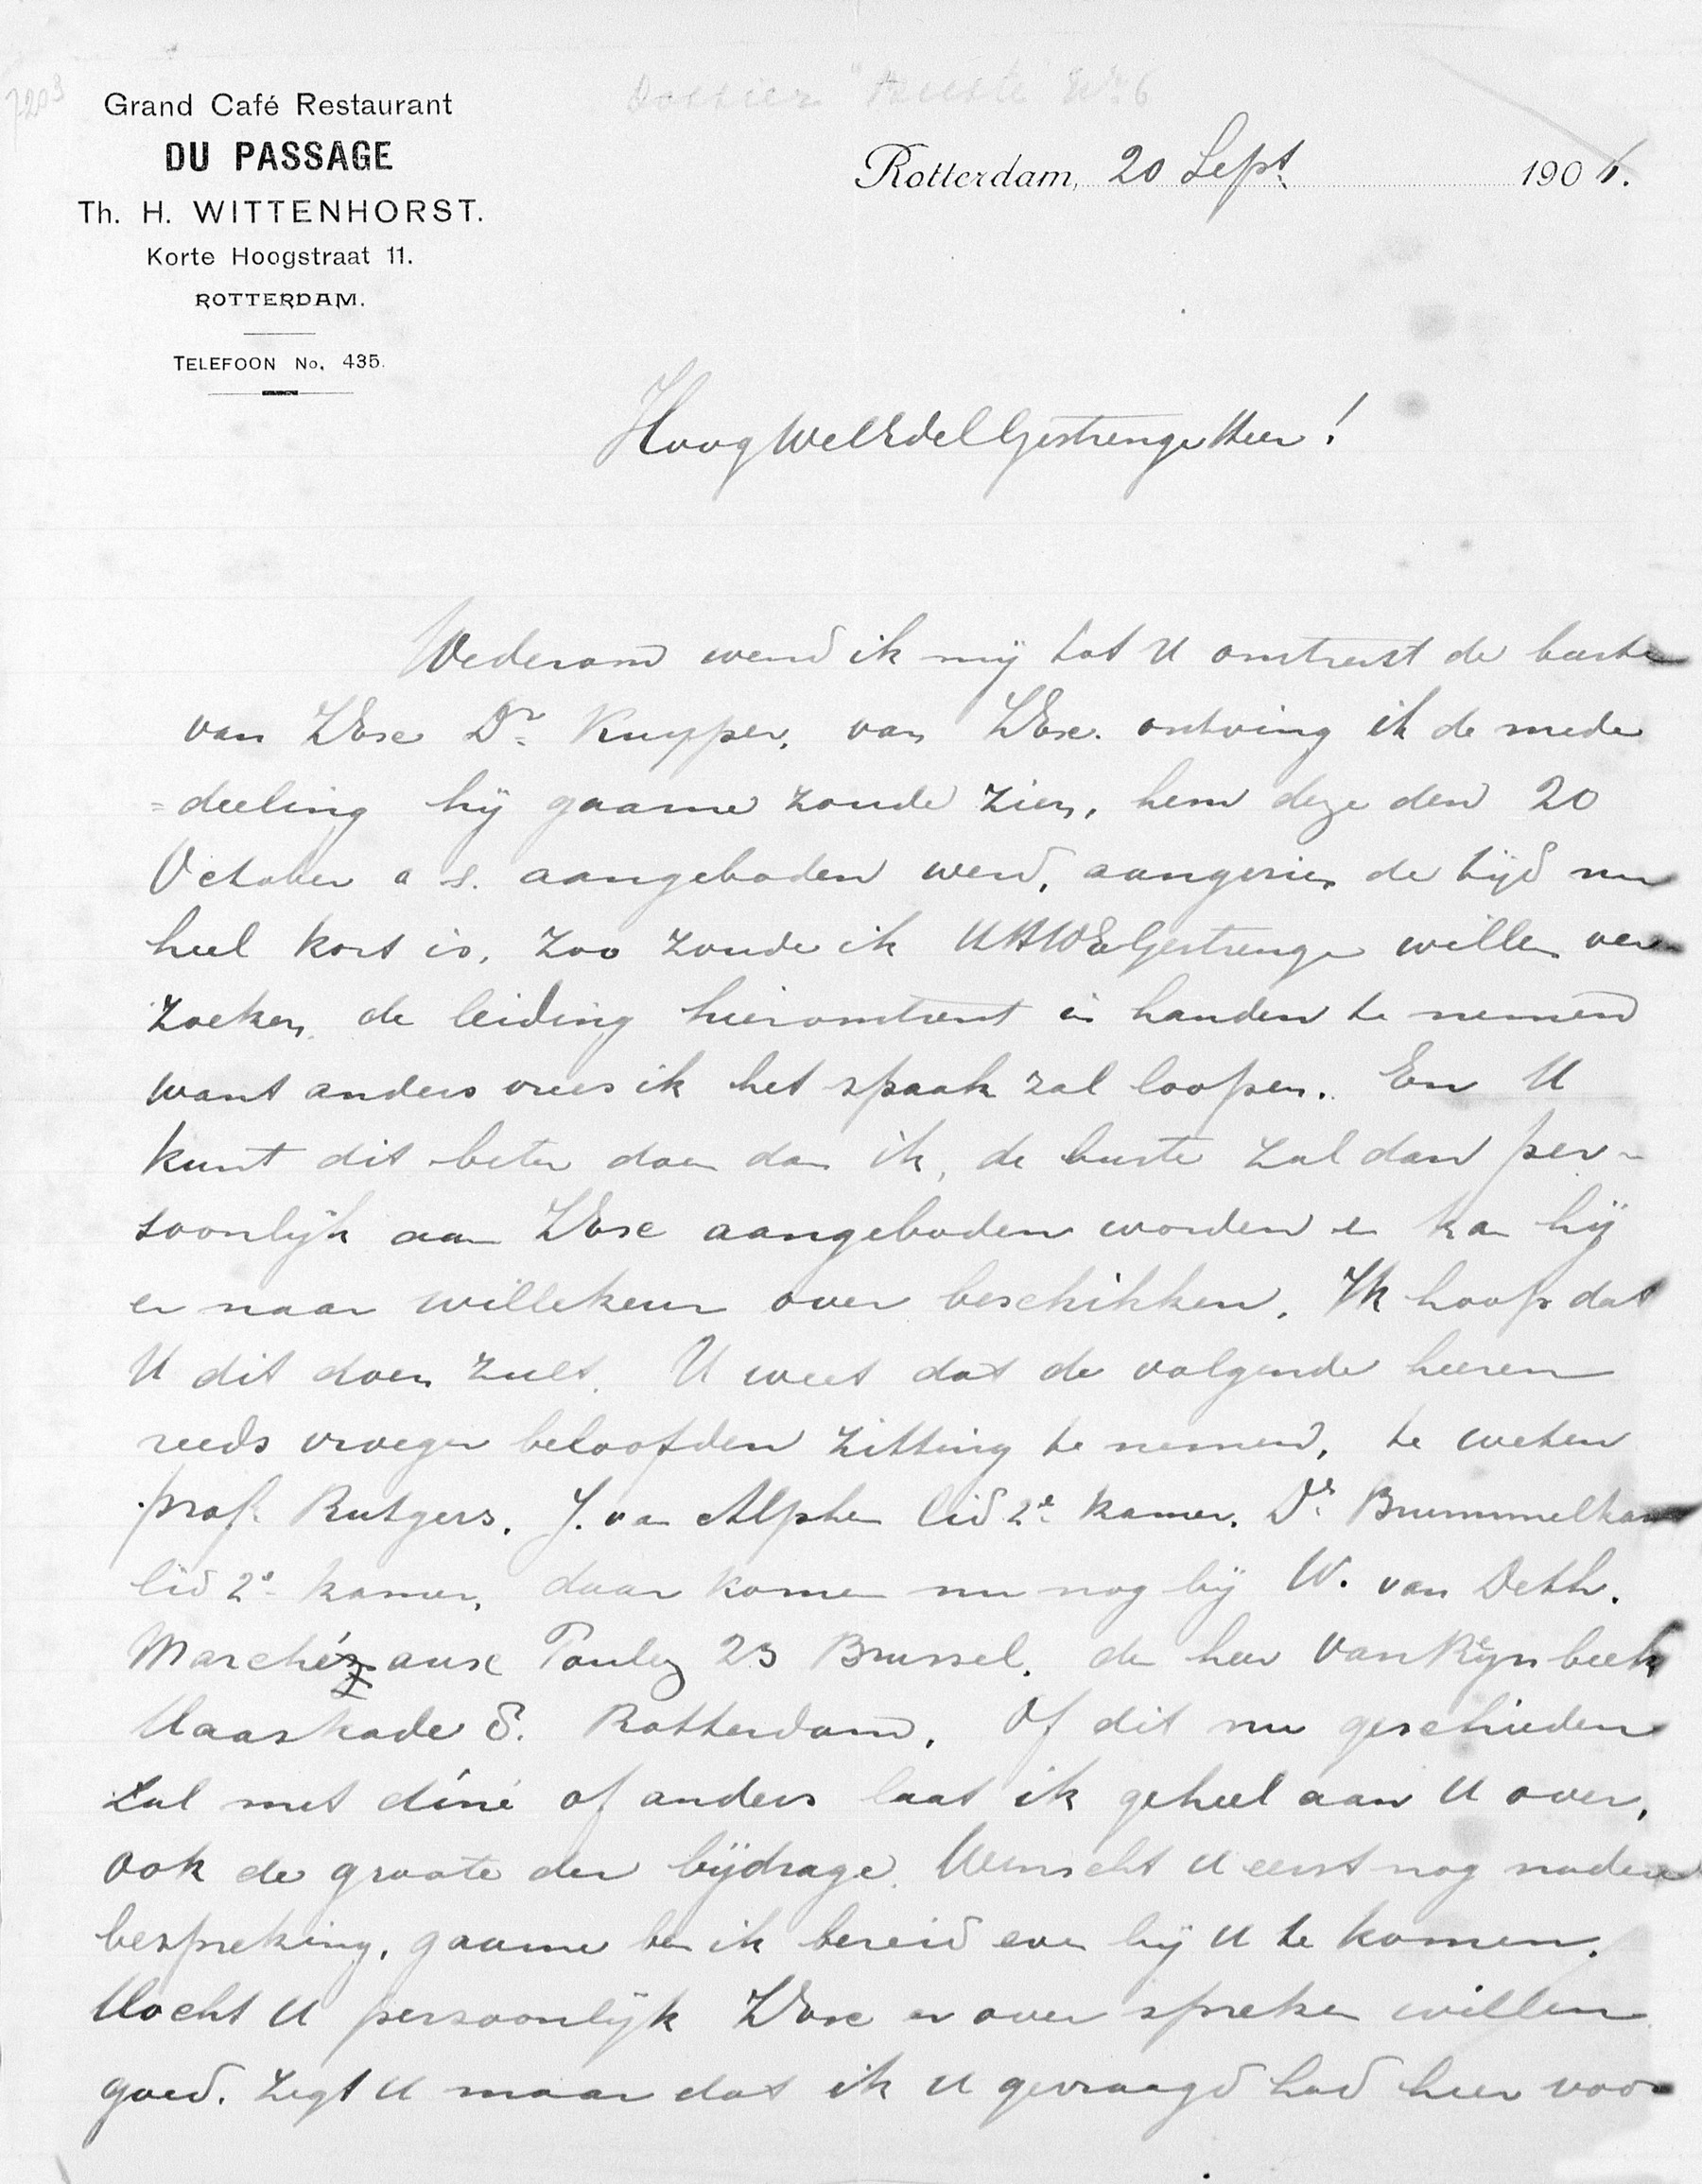 7203
Dossier "Buste" No 6
Grand Café Restaurant
DU PASSAGE
Th. H. WITTENHORST.
Korte Hoogstraat 11.
ROTTERDAM.
TELEFOON No. 435.
Rotterdam, 20 Sept. 1906.
HoogWelEdelGestrenge Heer!
Wederom wend ik mij tot U omtrent de buste
van ZExc Dr. Kuyper, van ZExc. ontving ik de mede
=deeling hij gaarne zoude zien, hem deze den 20
October a s. aangeboden werd, aangezien de tijd nu
heel kort is, zoo zoude ik UHWEGestrenge willen ver
zoeken, de leiding hieromtrent in handen te nemen
want anders vrees ik het spaak zal loopen. En U
kunt dit beter doen dan ik, de buste zal dan per-
soonlijk aan ZExc aangeboden worden en kan hij
er naar willekeur over beschikken. Ik hoop dat
U dit doen zult. U weet dat de volgende heeren
reeds vroeger beloofden zitting te nemen, te weten
prof. Rutgers. J. van Alphen lid 2e kamer. Dr. Brummelkamp
lid 2e kamer, daar komen nu nog bij W. van Deth.
Marché aux Poulez 23 Brussel. de heer van Rijnbeek
Maaskade 8. Rotterdam. Of dit nu geschieden
zal met diné of anders laat ik geheel aan U over,
ook de groote der bijdrage. Wenscht U eerst nog nadere
bespreking, gaarne ben ik bereid even bij U te komen.
Mocht U persoonlijk ZExc er over spreken willen
goed. Zegt U maar dat ik U gevraagd had hier voor